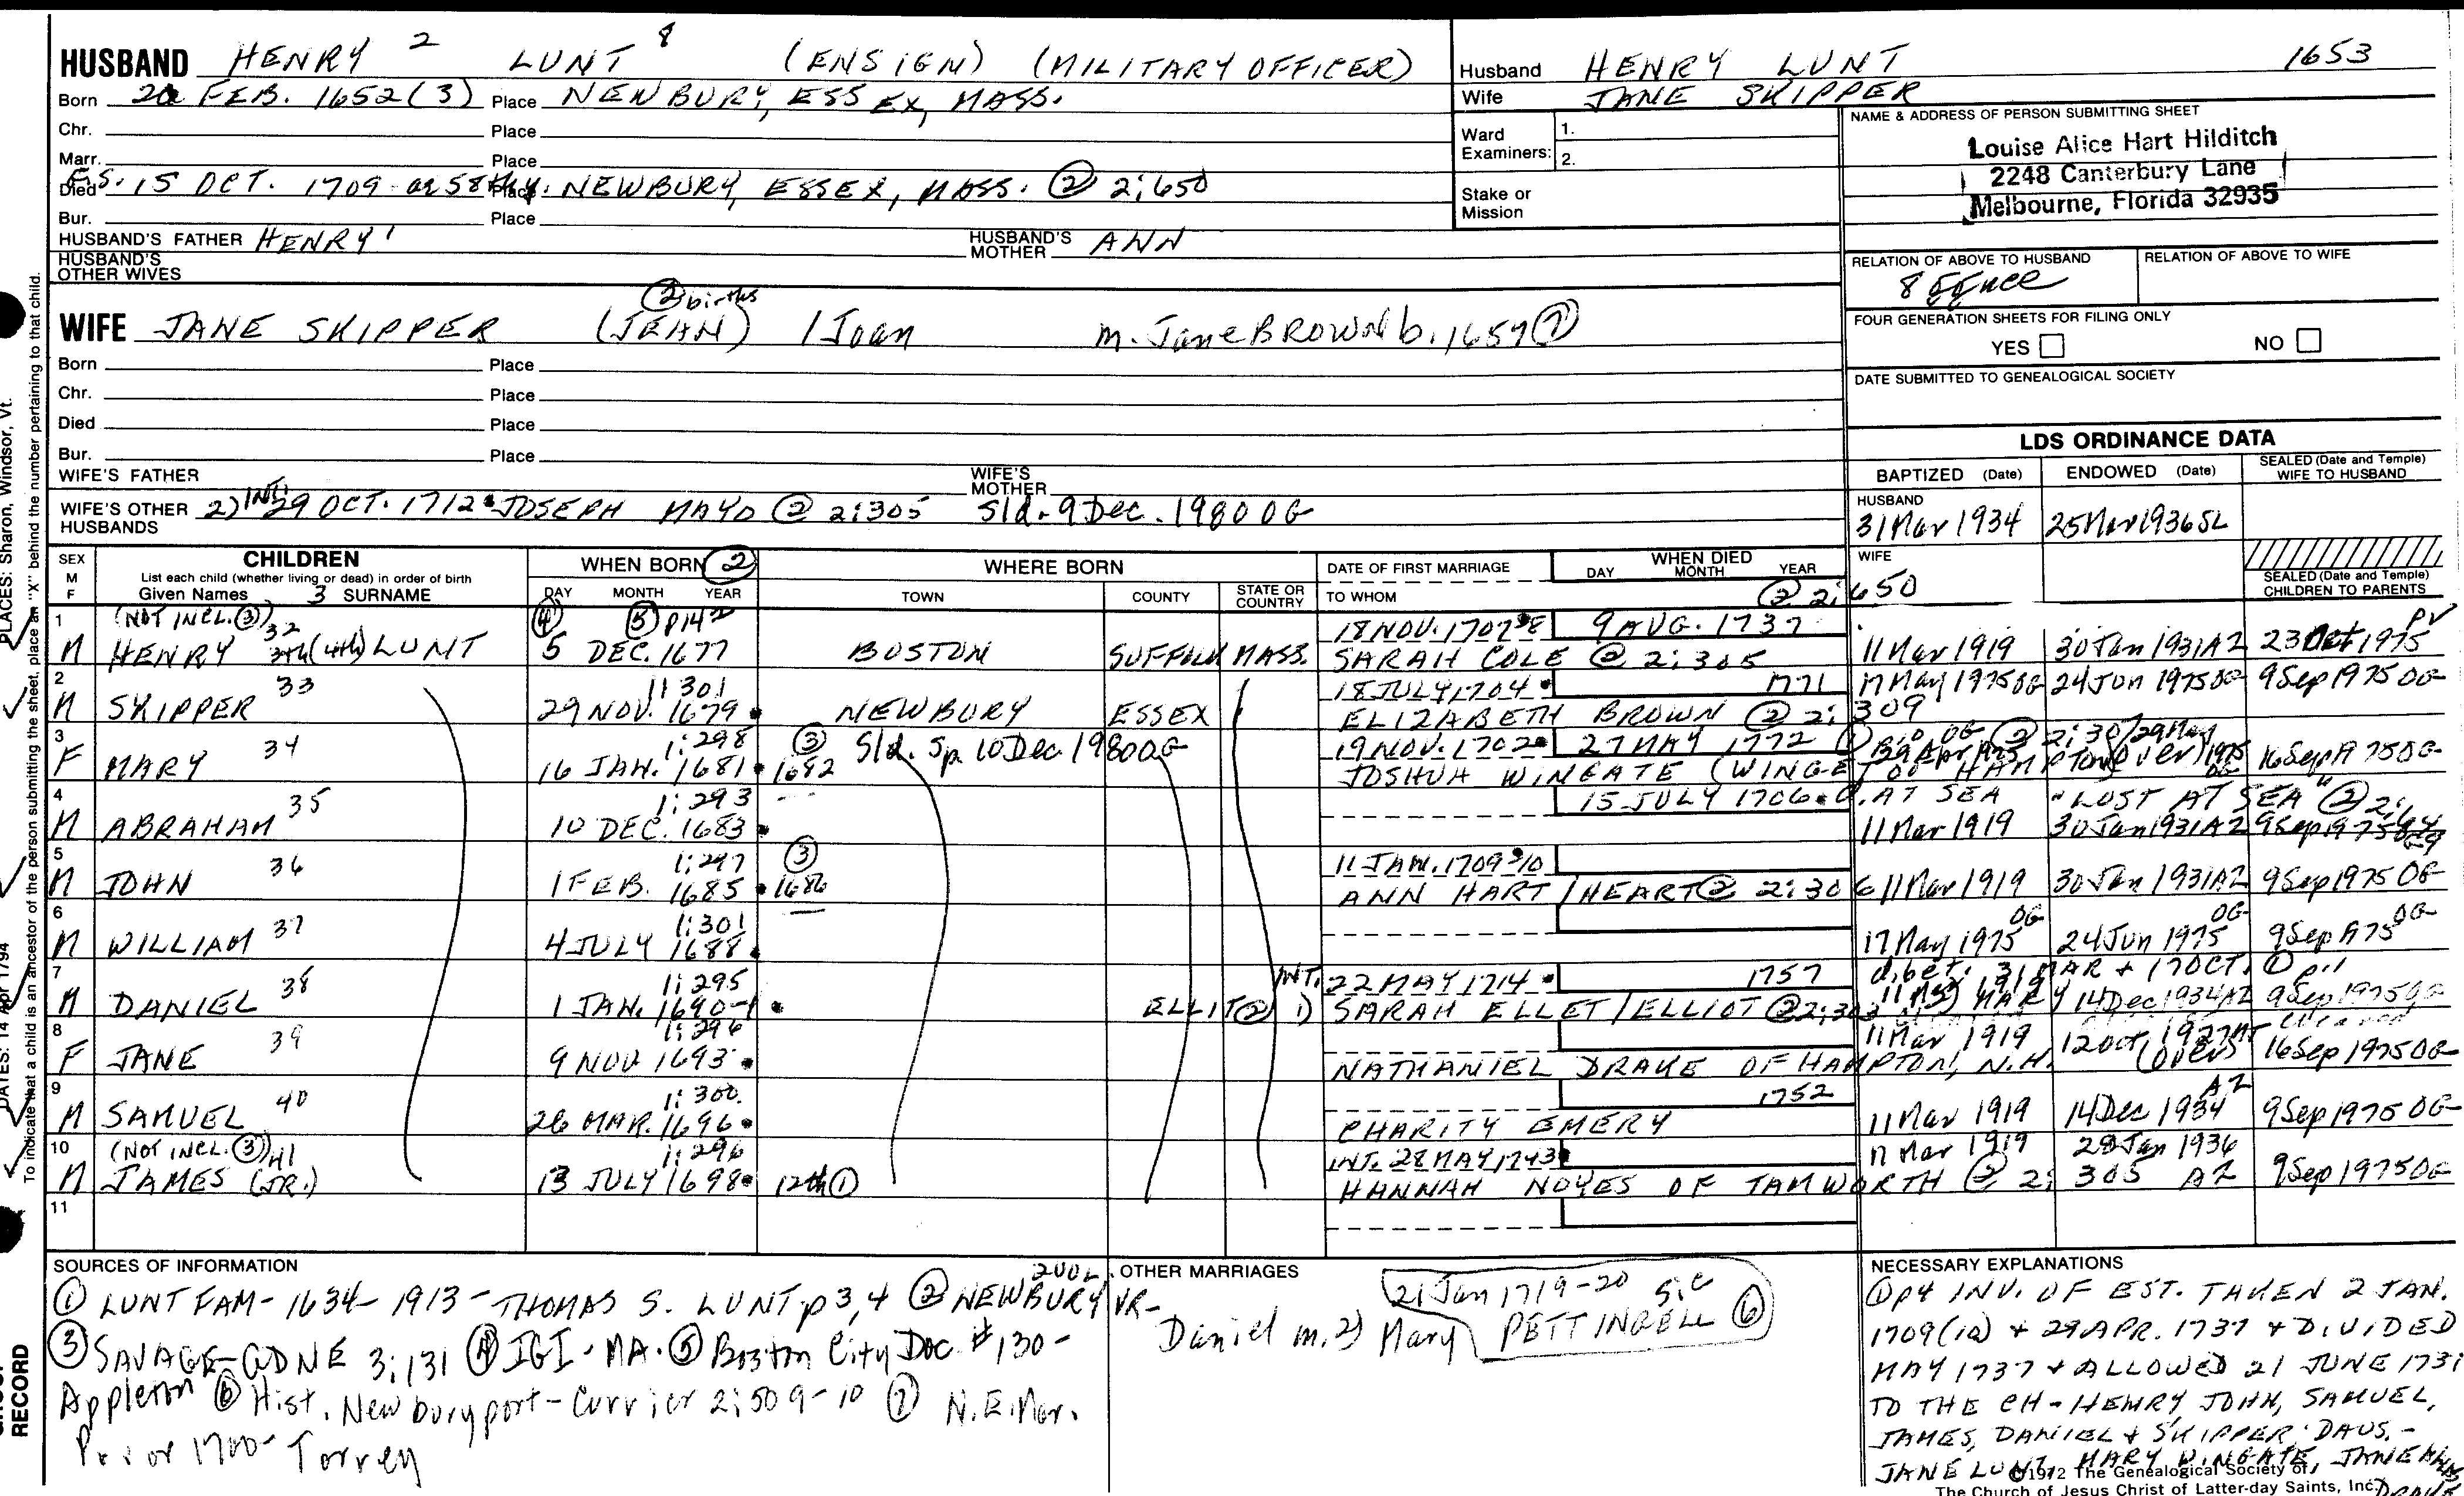 HUSBAND HENRY 2 LUNT 8 (ENSIGN) (MILITARY OFFICER)
Born FEB. 1652(3) Place NEWBURY, ESSEX, MASS.
Chr. Place
Marr. Place
Died 15 OCT. 1709 Place NEWBURY, ESSEX, MASS. ② 2:650
Bur. Place
HUSBAND'S FATHER HENRY 1 HUSBAND'S MOTHER ANN
HUSBAND'S OTHER WIVES
② births
WIFE JANE SKIPPER (JEAN) / Joan m. Jane BROWN b. 1657 ⑦
Born Place
Chr. Place
Died Place
Bur. Place
WIFE'S FATHER WIFE'S MOTHER
WIFE'S OTHER HUSBANDS 2) INT. 29 OCT. 1712 JOSEPH MAYO @ 2:305 Sld. 9 Dec. 1980 OG
Husband HENRY LUNT 1653
Wife JANE SKIPPER
Ward Examiners: 1.
2.
Stake or Mission
NAME & ADDRESS OF PERSON SUBMITTING SHEET
Louise Alice Hart Hilditch
2248 Canterbury Lane
Melbourne, Florida 32935
RELATION OF ABOVE TO HUSBAND RELATION OF ABOVE TO WIFE
FOUR GENERATION SHEETS FOR FILING ONLY
YES NO
DATE SUBMITTED TO GENEALOGICAL SOCIETY
LDS ORDINANCE DATA
BAPTIZED (Date) ENDOWED (Date) SEALED (Date and Temple) WIFE TO HUSBAND
HUSBAND
31 Mar 1934 25 Mar 1936 SL
WIFE
SEALED (Date and Temple) CHILDREN TO PARENTS
SEX M F
CHILDREN
List each child (whether living or dead) in order of birth
Given Names 3 SURNAME
WHEN BORN ②
DAY MONTH YEAR
WHERE BORN
TOWN COUNTY STATE OR COUNTRY
DATE OF FIRST MARRIAGE
TO WHOM
WHEN DIED
DAY MONTH YEAR
② 2:650
1 (NOT INCL. ③) 32 ④ ⑤ p142 18 NOV. 1707-8 9 AUG. 1737 PV
M HENRY (4th) LUNT 5 DEC. 1677 BOSTON SUFFOLK MASS. SARAH COLE @ 2:305 11 Mar 1919 30 Jan 1931 AZ 23 Oct 1975
2 33 1:301 18 JULY 1704 1771 17 May 1975 OG 24 Jun 1975 OG 9 Sep 1975 OG
M SKIPPER 29 NOV. 1679 NEWBURY ESSEX ELIZABETH BROWN ② 2:309
3 34 1:298 ③ Sld. Sp. 10 Dec 1980 OG 19 NOV. 1702 27 MAY 1772
F MARY 16 JAN. 1681 1682 JOSHUA WINGATE (WINGET OF HAMPTON (over) 16 Sep 1975 OG
4 35 1:293 15 JULY 1706 D. AT SEA "LOST AT SEA" ②
M ABRAHAM 10 DEC. 1683 11 Mar 1919 30 Jan 1931 AZ 9 Sep 1975
5 36 1:297 ③ 11 JAN. 1709-10
M JOHN 1 FEB. 1685 1686 ANN HART / HEART @ 2:306 11 Mar 1919 30 Jan 1931 AZ 9 Sep 1975 OG
6 37 1:301 OG OG OG
M WILLIAM 4 JULY 1688 17 May 1975 24 Jun 1975 9 Sep 1975
7 38 1:295 INT. 22 MAY 1714 1757 d. bet. 31 MAR + 17 OCT. ① p11
M DANIEL 1 JAN. 1690-1 ELLIT ② 1) SARAH ELLET / ELLIOT @ 2:303 MARY 14 Dec 1934 AZ 9 Sep 1975 OG
8 39 1:296 11 Mar 1919 12 Oct 1927
F JANE 9 NOV. 1693 NATHANIEL DRAKE OF HAMPTON, N.H. (over) 16 Sep 1975 OG
9 40 1:300 1752 AZ
M SAMUEL 26 MAR. 1696 CHARITY EMERY 11 Mar 1919 14 Dec 1934 9 Sep 1975 OG
10 (NOT INCL. ③) 41 1:296 INT. 28 MAY 1743 Mar 1919 28 Jan 1936
M JAMES (JR.) 13 JULY 1698 12th ① HANNAH NOYES OF TAMWORTH @ 2:305 AZ 9 Sep 1975 OG
11
SOURCES OF INFORMATION
① LUNT FAM - 1634-1913 - THOMAS S. LUNT p 3,4 ② NEWBURY VR -
③ SAVAGE-GDNE 3:131 ④ IGI - MA. ⑤ Boston City Doc #130 -
Appleton ⑥ Hist. Newburyport - Currier 2:509-10 ⑦ N.E. Mar.
Prior 1700 - Torrey
OTHER MARRIAGES
21 Jan 1719-20 sic
Daniel m. 2) Mary PETTINGELL ⑥
NECESSARY EXPLANATIONS
① p4 INV. OF EST. TAKEN 2 JAN.
1709(10) + 29 APR. 1737 + DIVIDED
MAY 1737 + ALLOWED 21 JUNE 1737
TO THE CH - HENRY, JOHN, SAMUEL,
JAMES, DANIEL + SKIPPER, DAUS. -
JANE LUNT, MARY WINGATE, JANE
DRAKE
©1972 The Genealogical Society of
The Church of Jesus Christ of Latter-day Saints, Inc.
PLACES: Sharon, Windsor, Vt.
DATES: 14 Apr 1794
To indicate that a child is an ancestor of the person submitting the sheet, place an "X" behind the number pertaining to that child.
RECORD